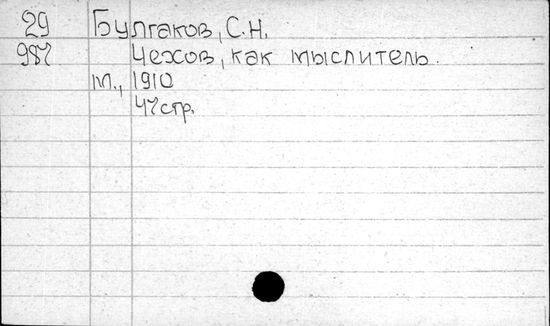 29 Булгаков, С.Н.
987 Чехов, как мыслитель.
М., 1910
47 стр.